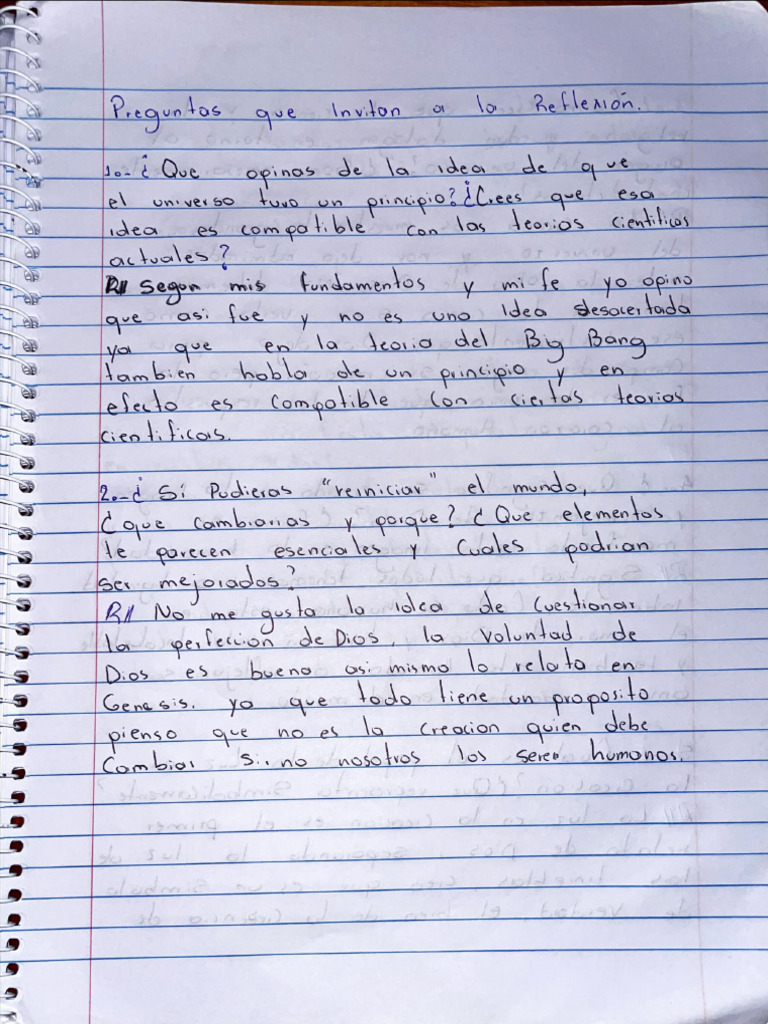 Preguntas que Invitan a la Reflexión.
1.- ¿ Que opinas de la idea de que
el universo tuvo un principio? ¿Crees que esa
idea es compatible con las teorias cientificas
actuales?
R// Segun mis fundamentos y mi fe yo opino
que asi fue y no es una Idea desacertada
ya que en la teoria del Big Bang
tambien habla de un principio y en
efecto es compatible con ciertas teorias
cientificas.
2.- ¿ Si Pudieras "reiniciar" el mundo,
¿ que cambiarias y porque? ¿ Que elementos
te parecen esenciales y Cuales podrian
ser mejorados?
R// No me gusta la idea de Cuestionar
la perfeccion de Dios, la voluntad de
Dios es buena asi mismo lo relata en
Genesis. ya que todo tiene un proposito
pienso que no es la Creacion quien debe
Cambiar Si, no nosotros los seres humanos.